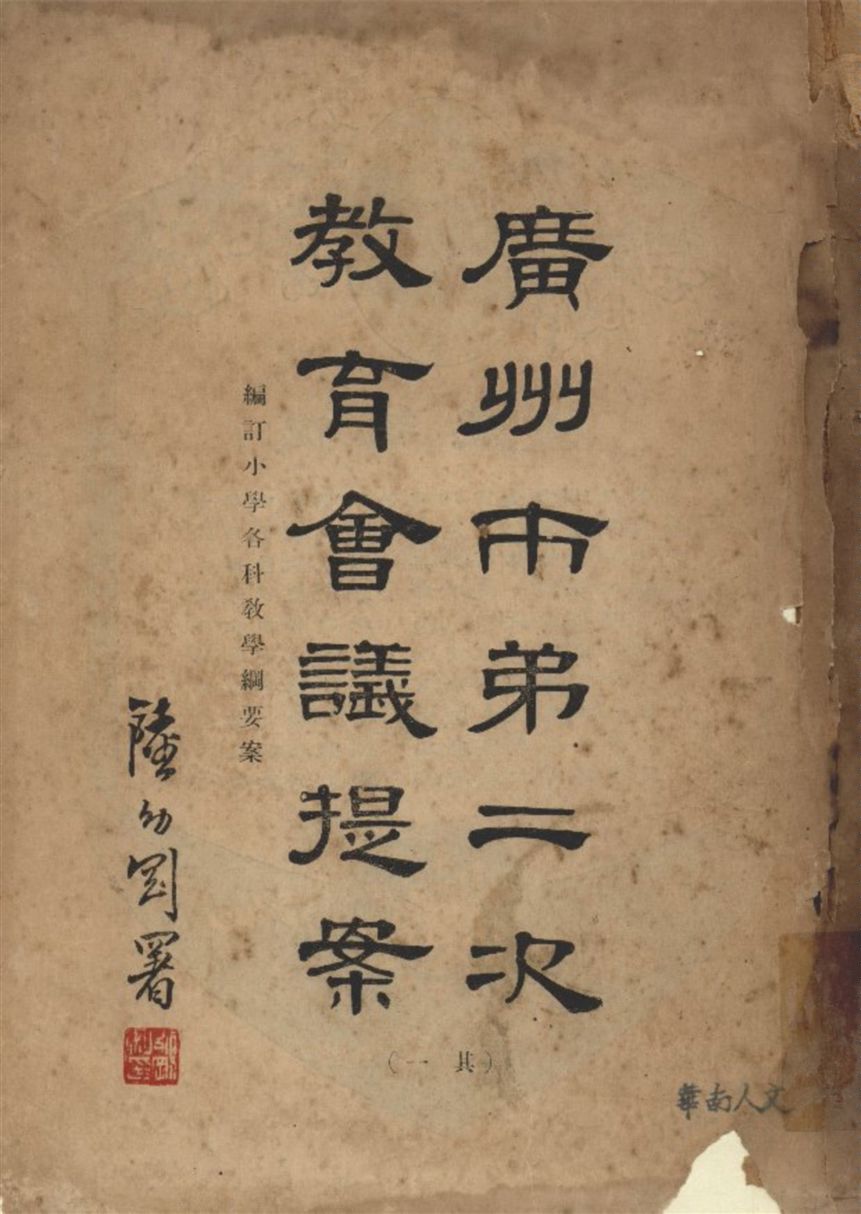 廣州市弟二次
教育會議提案
編訂小學各科教學綱要案
陸幼剛署
（其一）
華南人文